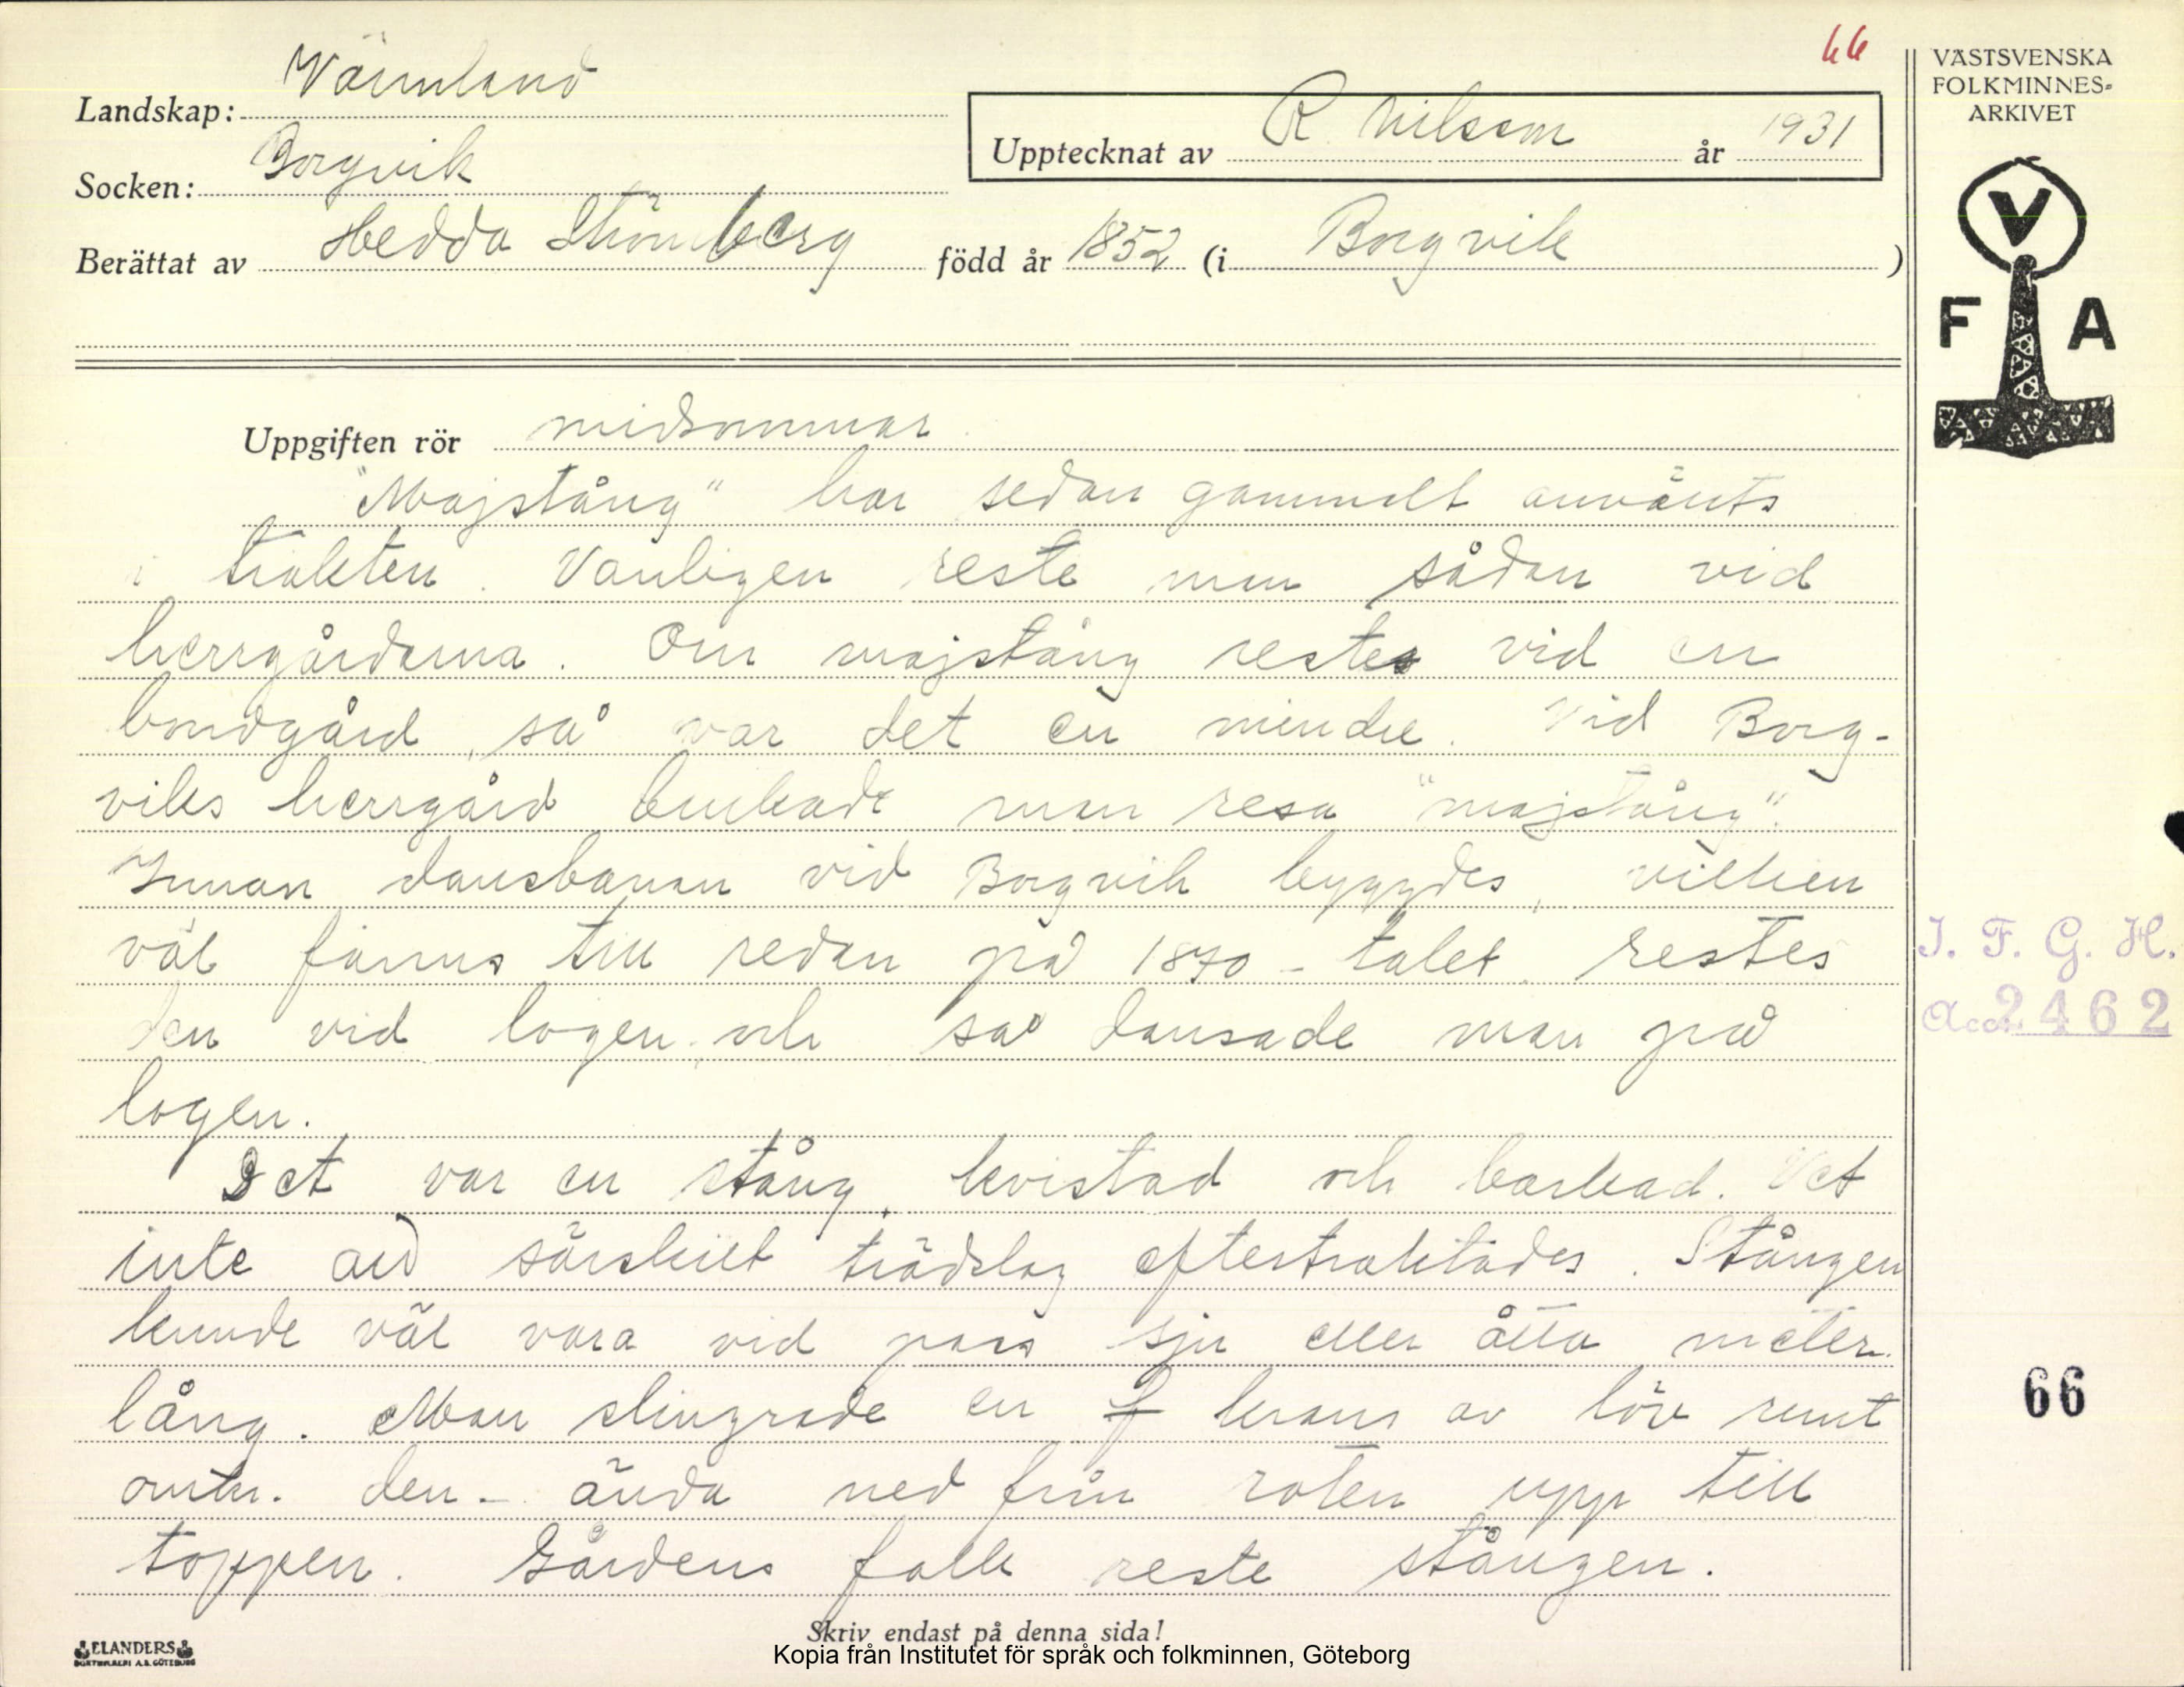 66
VÄSTSVENSKA
FOLKMINNES=
ARKIVET
V
F A
Landskap: Värmland
Upptecknat av R. Nilsson år 1931
Socken: Borgvik
Berättat av Hedda Strömberg född år 1852 (i Borgvik )
Uppgiften rör midsommar
"Majstång" har sedan gammalt använts
i trakten. Vanligen reste man sådan vid
herrgårdarna. Om majstång restes vid en
bondgård, så var det en mindre. Vid Borg-
viks herrgård brukade man resa "majstång".
Innan dansbanan vid Borgvik byggdes, vilken
väl fanns till redan på 1870-talet, restes
den vid logen, och så dansade man på
logen.
Det var en stång, kvistad och barkad. Vet
inte att särskilt trädslag eftertraktades. Stången
kunde väl vara vid pass sju eller åtta meter
lång. Man slingrade en f krans av löv runt
omkr. den - ända ned från roten upp till
toppen. Gårdens folk reste stången.
I. F. G. H.
Acc. 2462
66
Skriv endast på denna sida!
Kopia från Institutet för språk och folkminnen, Göteborg
ELANDERS
BOKTRYCKERI A.B. GÖTEBORG